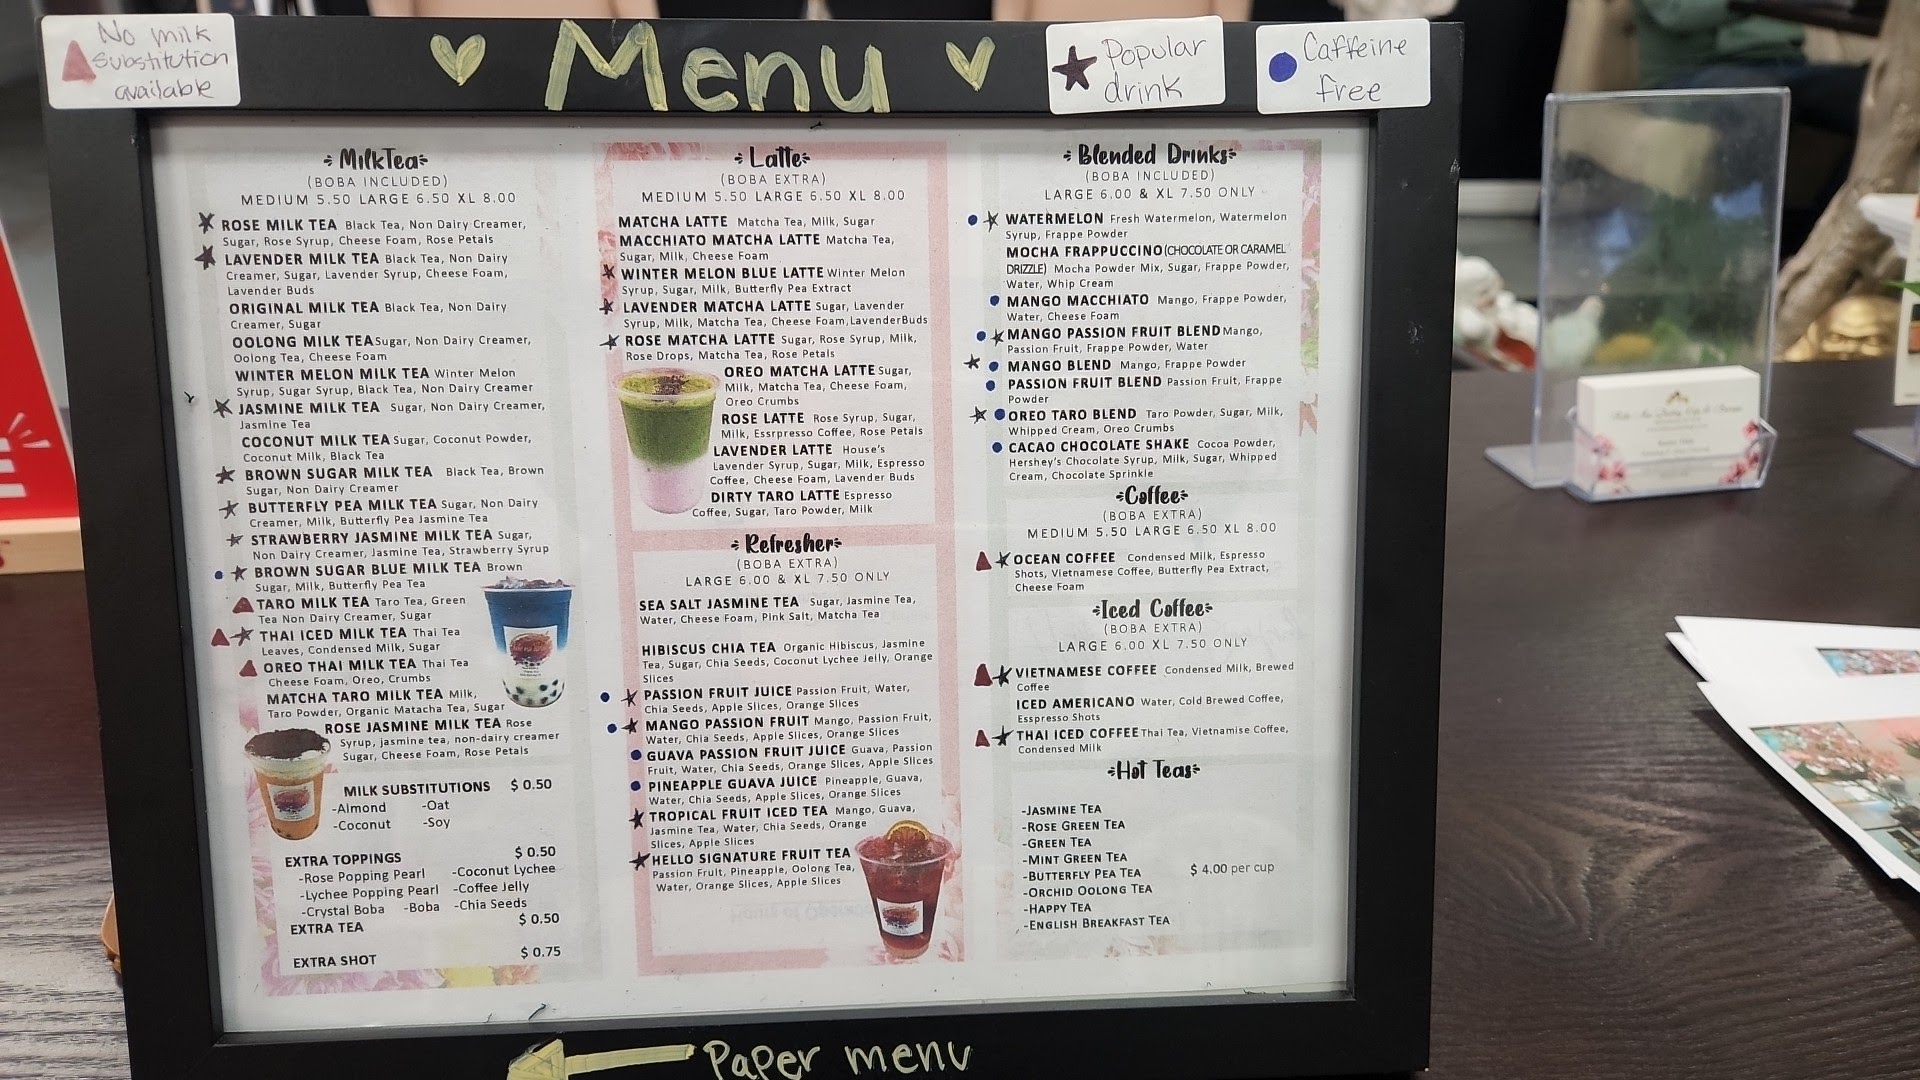 No milk
Substitution
available
Menu
Popular
drink
Caffeine
free
MilkTea
(BOBA INCLUDED)
MEDIUM 5.50 LARGE 6.50 XL 8.00
ROSE MILK TEA Black Tea, Non Dairy Creamer,
Sugar, Rose Syrup, Cheese Foam, Rose Petals
LAVENDER MILK TEA Black Tea, Non Dairy
Creamer, Sugar, Lavender Syrup, Cheese Foam,
Lavender Buds
ORIGINAL MILK TEA Black Tea, Non Dairy
Creamer, Sugar
OOLONG MILK TEA Sugar, Non Dairy Creamer,
Oolong Tea, Cheese Foam
WINTER MELON MILK TEA Winter Melon
Syrup, Sugar Syrup, Black Tea, Non Dairy Creamer
JASMINE MILK TEA Sugar, Non Dairy Creamer,
Jasmine Tea
COCONUT MILK TEA Sugar, Coconut Powder,
Coconut Milk, Black Tea
BROWN SUGAR MILK TEA Black Tea, Brown
Sugar, Non Dairy Creamer
BUTTERFLY PEA MILK TEA Sugar, Non Dairy
Creamer, Milk, Butterfly Pea Jasmine Tea
STRAWBERRY JASMINE MILK TEA Sugar,
Non Dairy Creamer, Jasmine Tea, Strawberry Syrup
BROWN SUGAR BLUE MILK TEA Brown
Sugar, Milk, Butterfly Pea Tea
TARO MILK TEA Taro Tea, Green
Tea Non Dairy Creamer, Sugar
THAI ICED MILK TEA Thai Tea
Leaves, Condensed Milk, Sugar
OREO THAI MILK TEA Thai Tea
Cheese Foam, Oreo, Crumbs
MATCHA TARO MILK TEA Milk,
Taro Powder, Organic Matacha Tea, Sugar
ROSE JASMINE MILK TEA Rose
Syrup, jasmine tea, non-dairy creamer
Sugar, Cheese Foam, Rose Petals
MILK SUBSTITUTIONS $ 0.50
-Almond -Oat
-Coconut -Soy
EXTRA TOPPINGS $ 0.50
-Rose Popping Pearl -Coconut Lychee
-Lychee Popping Pearl -Coffee Jelly
-Crystal Boba -Boba -Chia Seeds
EXTRA TEA $ 0.50
EXTRA SHOT $ 0.75
Latte
(BOBA EXTRA)
MEDIUM 5.50 LARGE 6.50 XL 8.00
MATCHA LATTE Matcha Tea, Milk, Sugar
MACCHIATO MATCHA LATTE Matcha Tea,
Sugar, Milk, Cheese Foam
WINTER MELON BLUE LATTE Winter Melon
Syrup, Sugar, Milk, Butterfly Pea Extract
LAVENDER MATCHA LATTE Sugar, Lavender
Syrup, Milk, Matcha Tea, Cheese Foam, LavenderBuds
ROSE MATCHA LATTE Sugar, Rose Syrup, Milk,
Rose Drops, Matcha Tea, Rose Petals
OREO MATCHA LATTE Sugar,
Milk, Matcha Tea, Cheese Foam,
Oreo Crumbs
ROSE LATTE Rose Syrup, Sugar,
Milk, Essrpresso Coffee, Rose Petals
LAVENDER LATTE House's
Lavender Syrup, Sugar, Milk, Espresso
Coffee, Cheese Foam, Lavender Buds
DIRTY TARO LATTE Espresso
Coffee, Sugar, Taro Powder, Milk
Refresher
(BOBA EXTRA)
LARGE 6.00 & XL 7.50 ONLY
SEA SALT JASMINE TEA Sugar, Jasmine Tea,
Water, Cheese Foam, Pink Salt, Matcha Tea
HIBISCUS CHIA TEA Organic Hibiscus, Jasmine
Tea, Sugar, Chia Seeds, Coconut Lychee Jelly, Orange
Slices
PASSION FRUIT JUICE Passion Fruit, Water,
Chia Seeds, Apple Slices, Orange Slices
MANGO PASSION FRUIT Mango, Passion Fruit,
Water, Chia Seeds, Apple Slices, Orange Slices
GUAVA PASSION FRUIT JUICE Guava, Passion
Fruit, Water, Chia Seeds, Orange Slices, Apple Slices
PINEAPPLE GUAVA JUICE Pineapple, Guava,
Water, Chia Seeds, Apple Slices, Orange Slices
TROPICAL FRUIT ICED TEA Mango, Guava,
Jasmine Tea, Water, Chia Seeds, Orange
Slices, Apple Slices
HELLO SIGNATURE FRUIT TEA
Passion Fruit, Pineapple, Oolong Tea,
Water, Orange Slices, Apple Slices
Blended Drinks
(BOBA INCLUDED)
LARGE 6.00 & XL 7.50 ONLY
WATERMELON Fresh Watermelon, Watermelon
Syrup, Frappe Powder
MOCHA FRAPPUCCINO(CHOCOLATE OR CARAMEL
DRIZZLE) Mocha Powder Mix, Sugar, Frappe Powder,
Water, Whip Cream
MANGO MACCHIATO Mango, Frappe Powder,
Water, Cheese Foam
MANGO PASSION FRUIT BLEND Mango,
Passion Fruit, Frappe Powder, Water
MANGO BLEND Mango, Frappe Powder
PASSION FRUIT BLEND Passion Fruit, Frappe
Powder
OREO TARO BLEND Taro Powder, Sugar, Milk,
Whipped Cream, Oreo Crumbs
CACAO CHOCOLATE SHAKE Cocoa Powder,
Hershey's Chocolate Syrup, Milk, Sugar, Whipped
Cream, Chocolate Sprinkle
Coffee
(BOBA EXTRA)
MEDIUM 5.50 LARGE 6.50 XL 8.00
OCEAN COFFEE Condensed Milk, Espresso
Shots, Vietnamese Coffee, Butterfly Pea Extract,
Cheese Foam
Iced Coffee
(BOBA EXTRA)
LARGE 6.00 XL 7.50 ONLY
VIETNAMESE COFFEE Condensed Milk, Brewed
Coffee
ICED AMERICANO Water, Cold Brewed Coffee,
Esspresso Shots
THAI ICED COFFEE Thai Tea, Vietnamise Coffee,
Condensed Milk
Hot Teas
-JASMINE TEA
-ROSE GREEN TEA
-GREEN TEA
-MINT GREEN TEA
-BUTTERFLY PEA TEA $ 4.00 per cup
-ORCHID OOLONG TEA
-HAPPY TEA
-ENGLISH BREAKFAST TEA
Paper menu